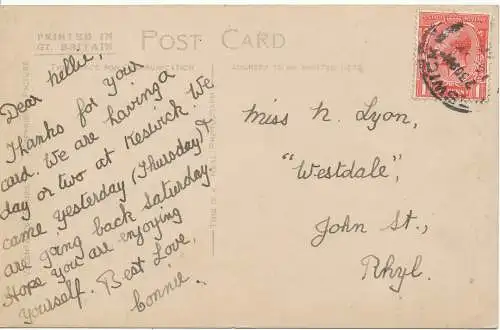 PRINTED IN
GT. BRITAIN
POST CARD
Dear Nellie,
Thanks for your
card. We are having a
day or two at Keswick. We
came yesterday (Thursday) &
are going back Saturday.
Hope you are enjoying
yourself. Best Love,
Connie.
Miss N. Lyon,
"Westdale",
John St.,
Rhyl.